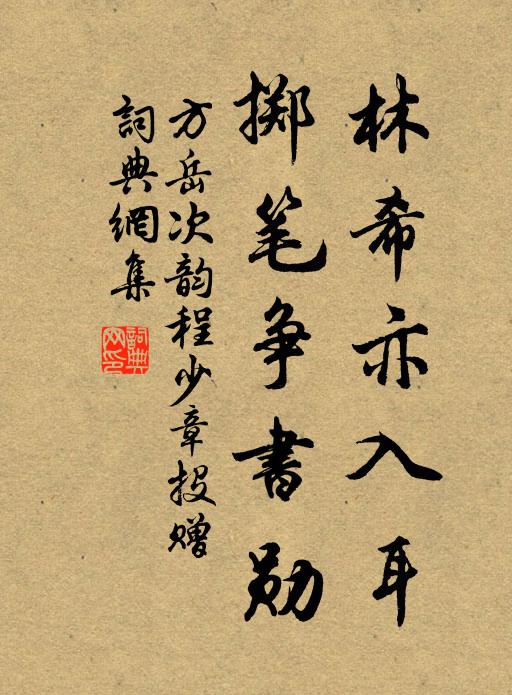 林希亦入耳
掷笔争書勋
方岳次韵程少章投赠
詞典網集
詞典网印